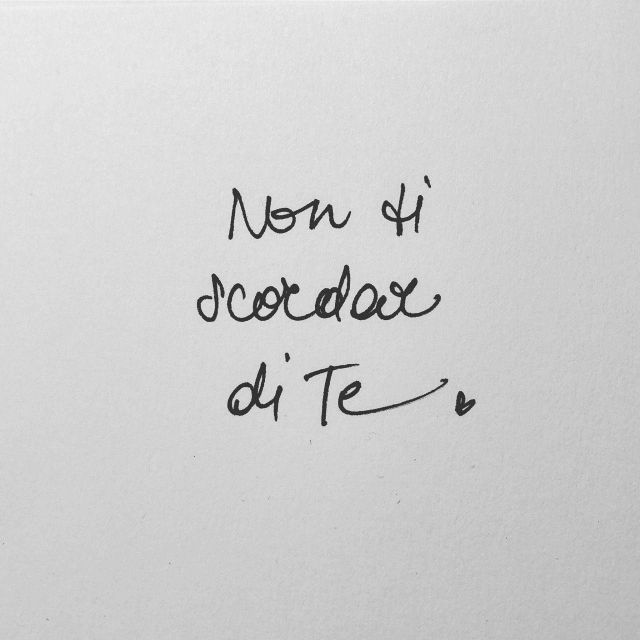 Non ti
scordar
di Te